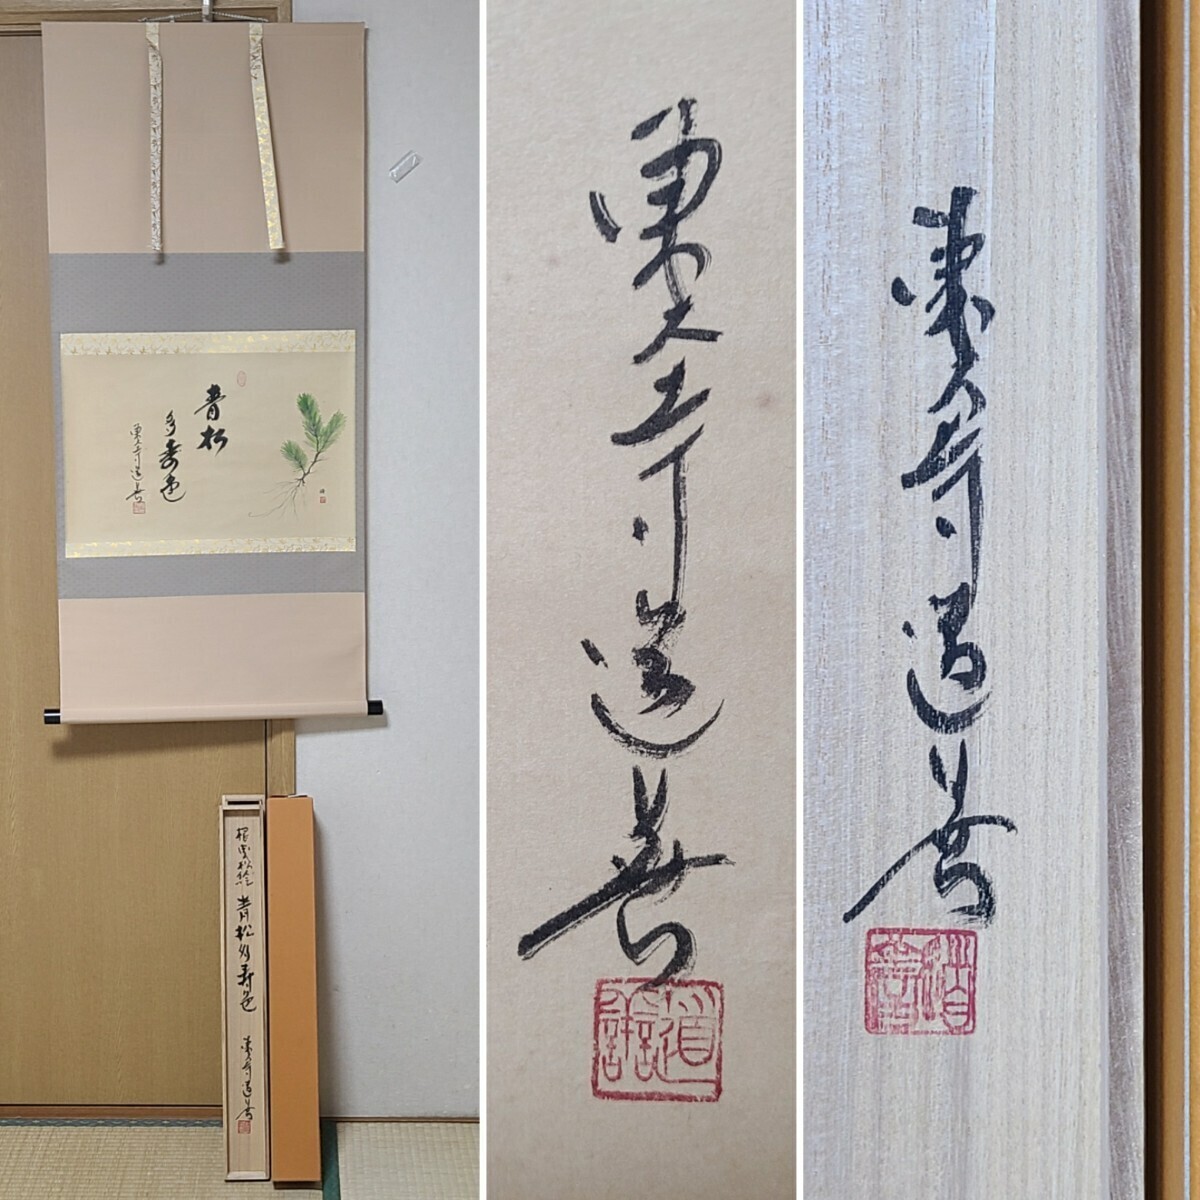 青松
多寿色
東大寺道善
道善
根曳松絵 青松多寿色
東大寺道善
東大寺道善
道善
東大寺道善
道善